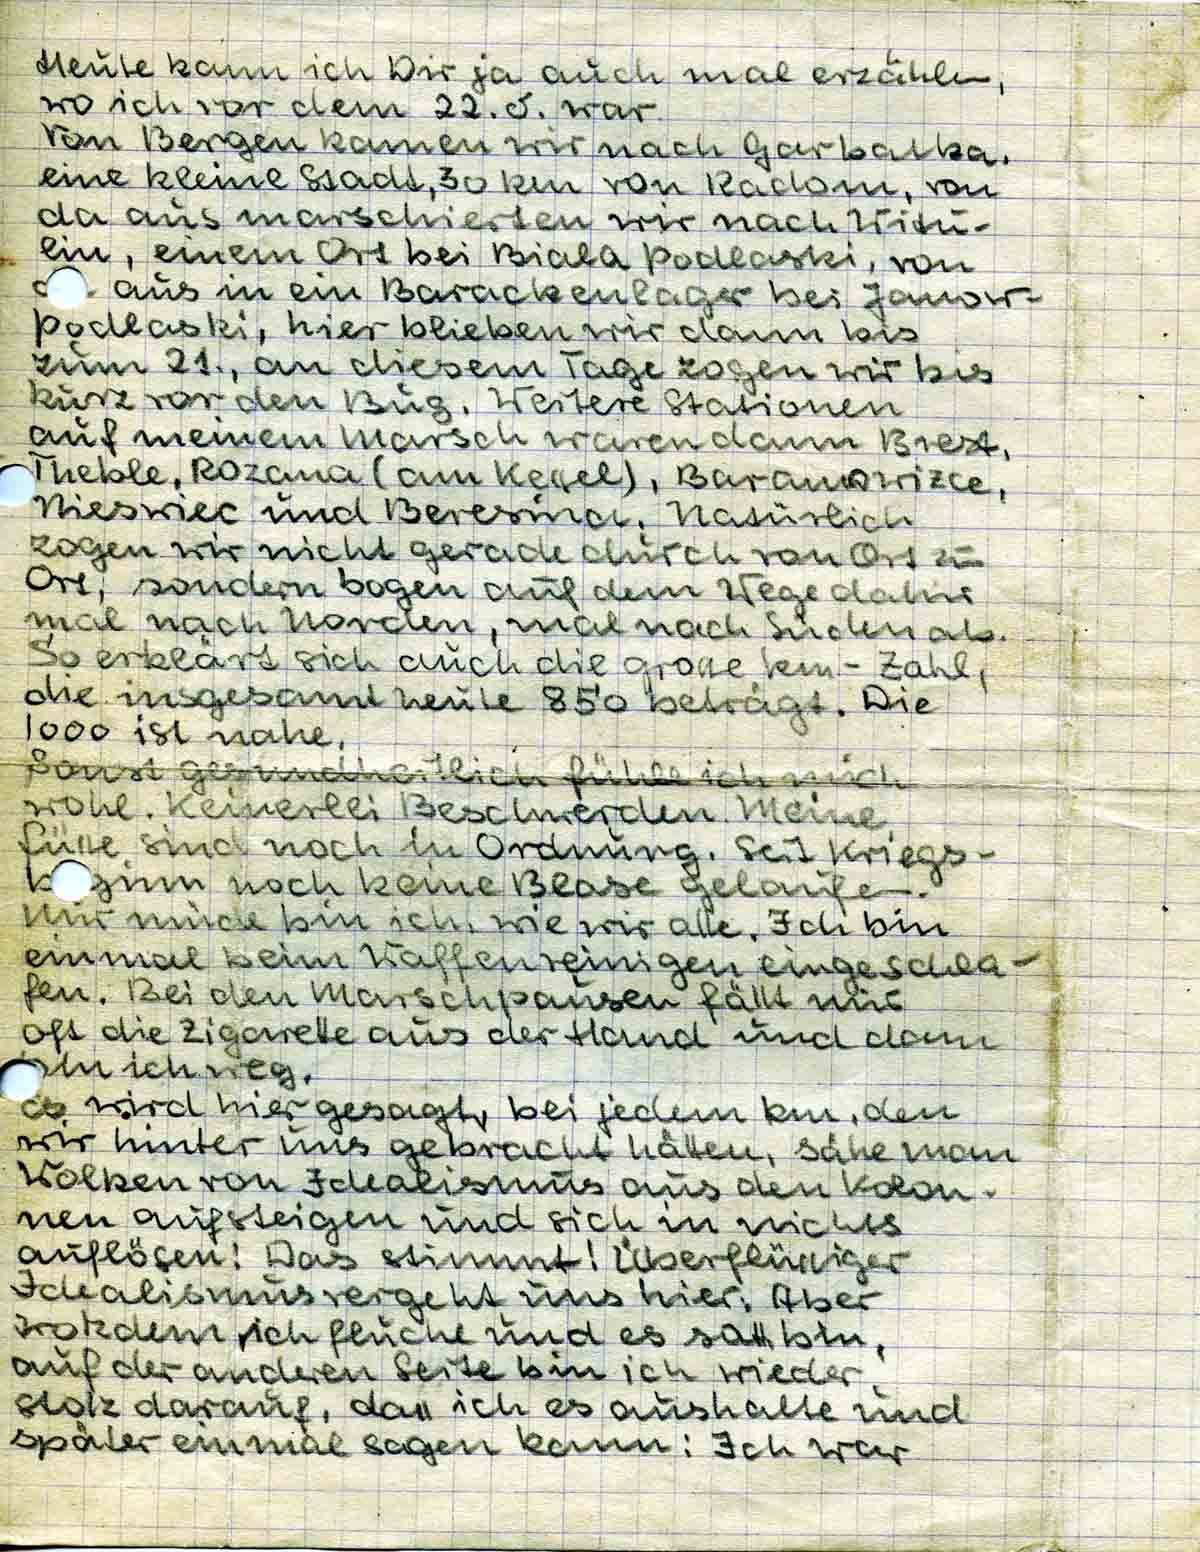 Heute kann ich Dir ja auch mal erzählen,
wo ich vor dem 22. 6. war
Von Bergen kamen wir nach Garbatka.
eine kleine Stadt, 30 km von Radom, von
da aus marschierten wir nach Witu-
lin, einem Ort bei Biala Podlaski, von
aus in ein Barackenlager bei Janow-
Podlaski, hier blieben wir dann bis
zum 21., an diesem Tage zogen wir bis
kurz vor den Bug. Weitere Stationen
auf meinem Marsch waren dann Brest,
Theble, Rozana (am Kessel), Baranowizce,
Nieswiec und Beresina. Natürlich
zogen wir nicht gerade durch von Ort zu
Ort, sondern bogen auf dem Wege dahin
mal nach Norden, mal nach Süden ab.
So erklärt sich auch die grosse km-Zahl,
die insgesamt heute 850 beträgt. Die
1000 ist nahe.
Sonst gesundheitlich fühle ich mich
wohl. Keinerlei Beschwerden. Meine
Füsse sind noch in Ordnung. Seit Kriegs-
beginn noch keine Blase gelaufen.
Nur müde bin ich, wie wir alle. Ich bin
einmal beim Waffenreinigen eingeschla-
fen. Bei den Marschpausen fällt mir
oft die Zigarette aus der Hand und dann
bin ich weg.
Es wird hier gesagt, bei jedem km, den
wir hinter uns gebracht hätten, sähe man
Wolken von Idealismus aus den Kolon-
nen aufsteigen und sich in nichts
auflösen! Das stimmt! Überflüssiger
Idealismus vergeht uns hier. Aber
trotzdem ich fluche und es satt bin,
auf der anderen Seite bin ich wieder
stolz darauf, dass ich es aushalte und
später einmal sagen kann: Ich war